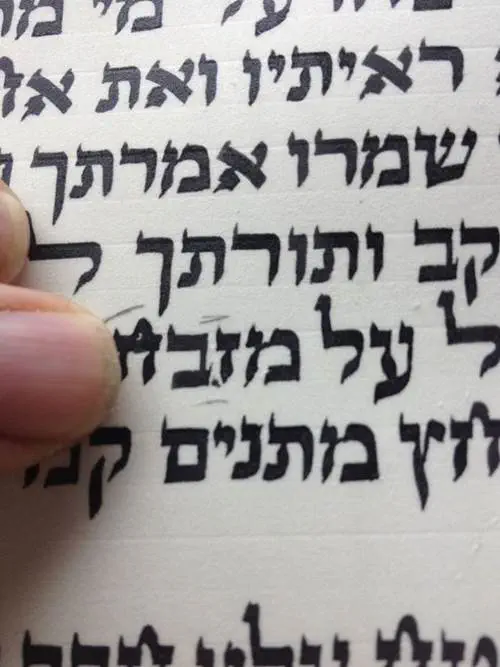 על מי
ראיתיו ואת
שמרו אמרתך
קב ותורתך
ל על מזבח
חץ מתנים